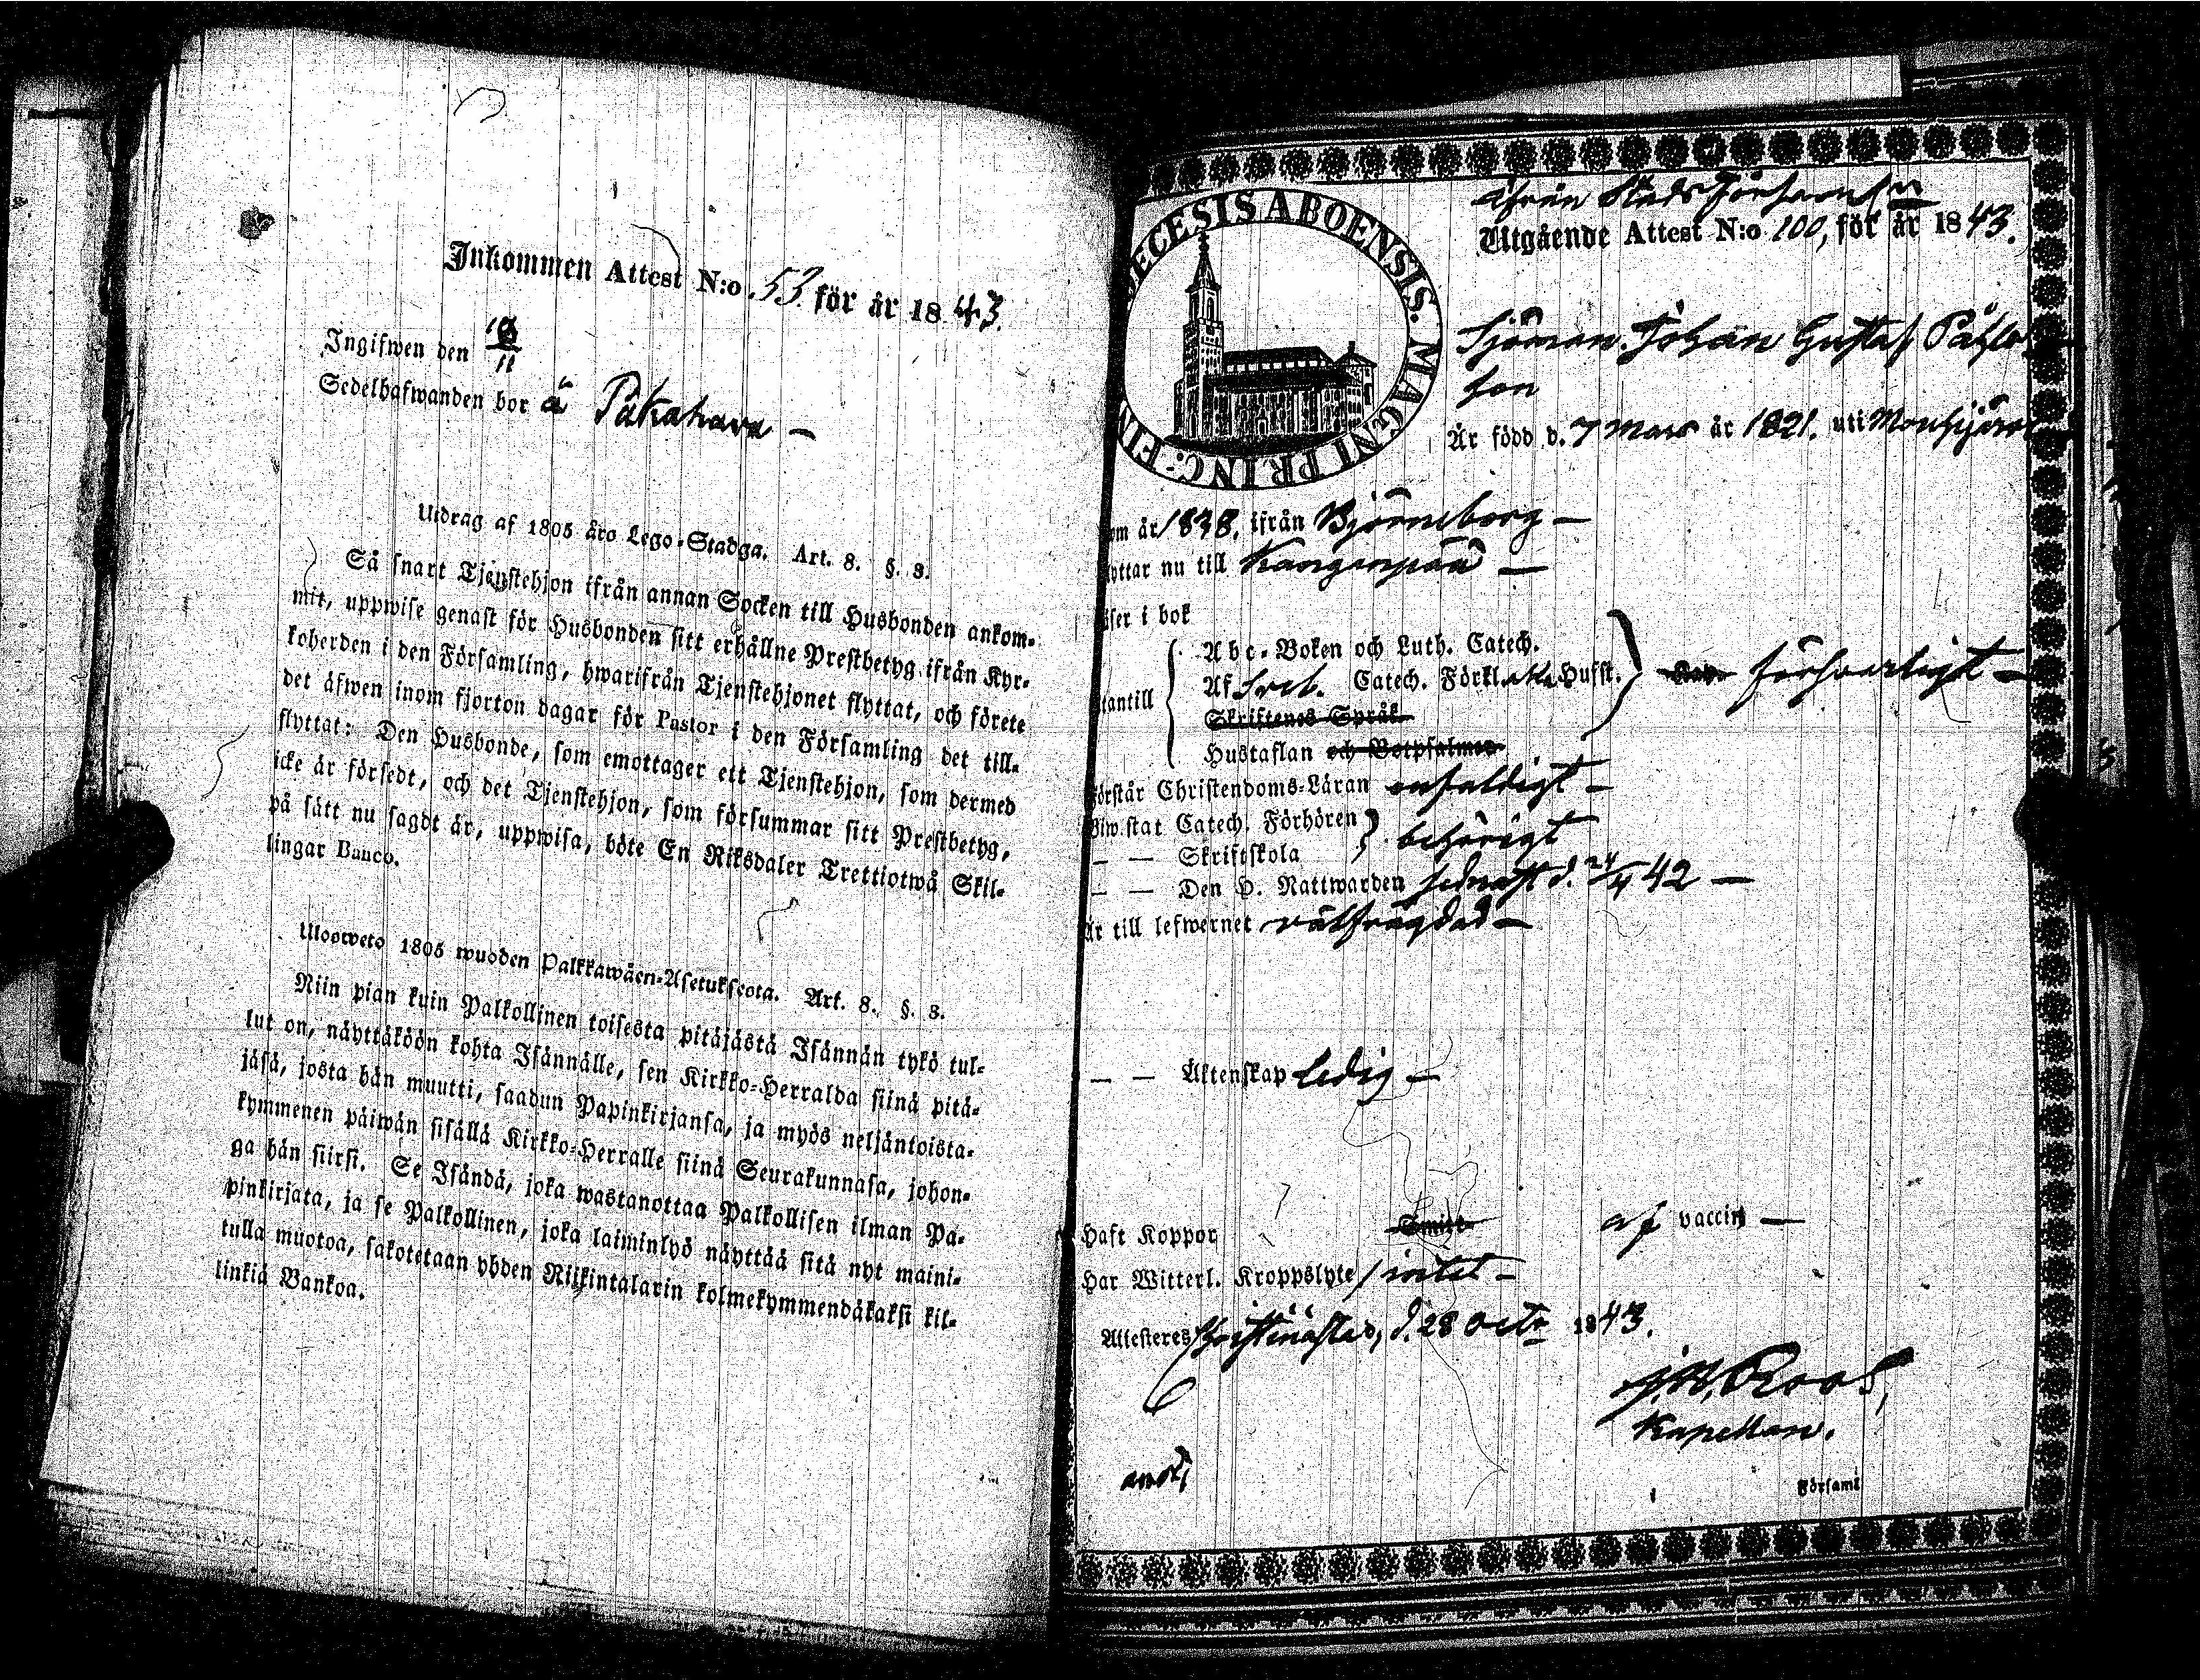 Inkommen Attest N:o 53. för år 1843.
Ingifwen den 18/11
Sedelhafwanden bor å Påkahara –
Utdrag af 1805 åro Lego-Stadga. Art. 8. §. 3.
Så snart Tjenstehjon ifrån annan Socken till Husbonden ankom-
mit, uppwise genast för Husbonden sitt erhållne Prestbetyg ifrån Kyr-
koherden i den Församling, hwarifrån Tjenstehjonet flyttat, och förete
det äfwen inom fjorton dagar för Pastor i den Församling det till-
flyttat: Den Husbonde, som emottager ett Tjenstehjon, som dermed
icke är försedt, och det Tjenstehjon, som försummar sitt Prestbetyg,
på sätt nu sagdt är, uppwisa, böte En Riksdaler Trettiotwå Skil-
lingar Banco.
Uloosweto 1805 wuoden Palkkawäen-Asetuksesta. Art. 8. §. 3.
Niin pian kuin Palkollinen toisesta pitäjästä Isännän tykö tul-
lut on, näyttäköön kohta Isännälle, sen Kirkko-Herralda siinä pitä-
jäsä, josta hän muutti, saadun Papinkirjansa, ja myös neljäntoista-
kymmenen päiwän sisällä Kirkko-Herralle siinä Seurakunnasa, johon-
ga hän siirsi. Se Isändä, joka wastanottaa Palkollisen ilman Pa-
pinkirjata, ja se Palkollinen, joka laiminlyö näyttää sitä nyt maini-
tulla muotoa, sakotetaan yhden Riikintalarin kolmekymmendäkaksi kil-
linkiä Bankoa.
DIECESIS ABOENSIS. MAGNI PRINC: FIN
ifrån Stads Församl:n
Utgående Attest N:o 100, för år 1843.
Sjöman Johan Gustaf Påhls
son
Är född d. 7 Mars år 1821. uti
om år 1838, ifrån Björneborg –
lyttar nu till Kangenpää –
äser i bok
Abc-Boken och Luth. Catech.
Af Sveb. Catech. Förkl. Hufst. förswarligt –
tantill Skriftenes Språk
Hustaflan och Botpsalmer
örstår Christendoms-Läran enfaldigt –
Biw.stat Catech. Förhören
– – Skriftskola behörigt
– – Den H. Nattwarden sednast d. 24/4 42 –
Är till lefwernet välfrägdad –
– – Äktenskap Ledig –
Haft Koppor Smitt af vaccin –
Har Witterl. Kroppslyte intet –
Attesteres Christinæstad, d. 28 Octr 1843.
J.W. Roos,
Kapellan.
Församl